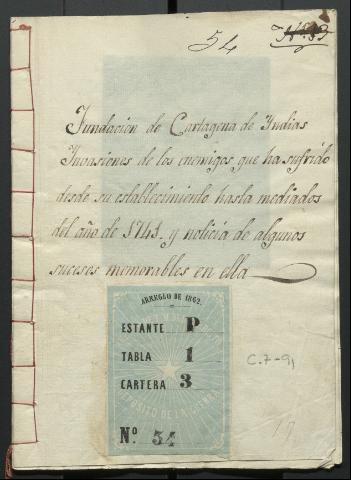 54
Nº 33
Fundacion de Cartagena de Indias
Invasiones de los enemigos que ha sufrido
desde su establecimiento hasta mediados
del año de 1741. y noticia de algunos
sucesos memorables en ella
ARREGLO DE 1862.
ESTANTE P
TABLA 1
CARTERA 3
DEPÓSITO DE LA GUERRA
Nº. 54
C.7-91
17